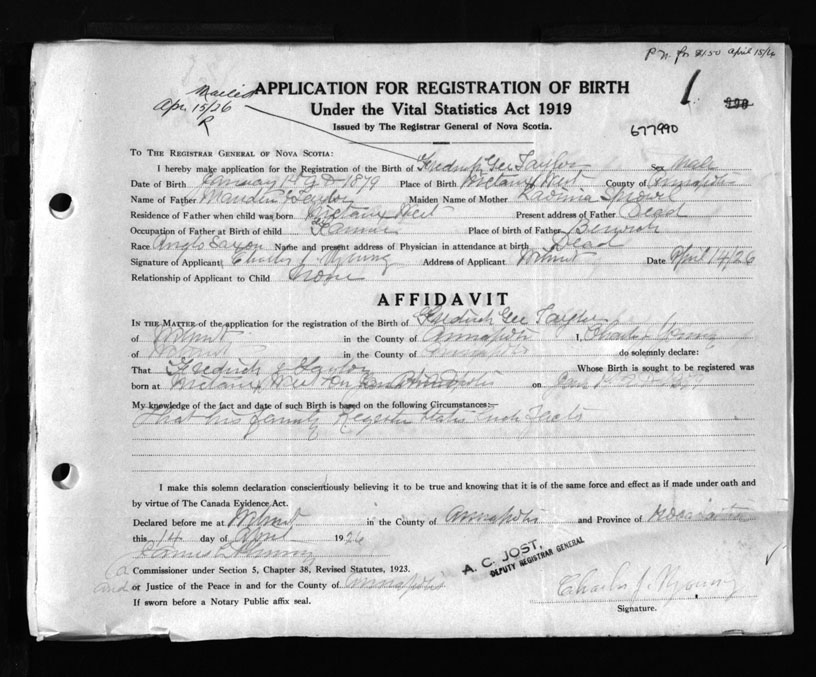 P.N. for $1.50 April 15/26
Mailed
Apr. 15/26
R
APPLICATION FOR REGISTRATION OF BIRTH
Under the Vital Statistics Act 1919
Issued by The Registrar General of Nova Scotia.
1
677990
TO THE REGISTRAR GENERAL OF NOVA SCOTIA:
I hereby make application for the Registration of the Birth of Fredrick Gee Taylor Sex Male
Date of Birth January 1879 Place of Birth West County of Annapolis
Name of Father Taylor Maiden Name of Mother Lavinia
Residence of Father when child was born West Present address of Father Dead
Occupation of Father at Birth of child Farmer Place of birth of Father Berwick
Race Anglo Saxon Name and present address of Physician in attendance at birth Dead
Signature of Applicant Charles J. Address of Applicant Date April 14/26
Relationship of Applicant to Child None
AFFIDAVIT
IN THE MATTER of the application for the registration of the Birth of Fredrick Gee Taylor
of in the County of Annapolis I, Charles
of in the County of Annapolis do solemnly declare:
That Fredrick Taylor Whose Birth is sought to be registered was
born at West on Jan
My knowledge of the fact and date of such Birth is based on the following Circumstances:—
That his family Register States such Facts
I make this solemn declaration conscientiously believing it to be true and knowing that it is of the same force and effect as if made under oath and
by virtue of The Canada Evidence Act.
Declared before me at in the County of Annapolis and Province of Nova Scotia
this 14 day of April 1926
A. C. JOST,
DEPUTY REGISTRAR GENERAL
a Commissioner under Section 5, Chapter 38, Revised Statutes, 1923.
and or Justice of the Peace in and for the County of Annapolis
If sworn before a Notary Public affix seal.
Charles J.
Signature.